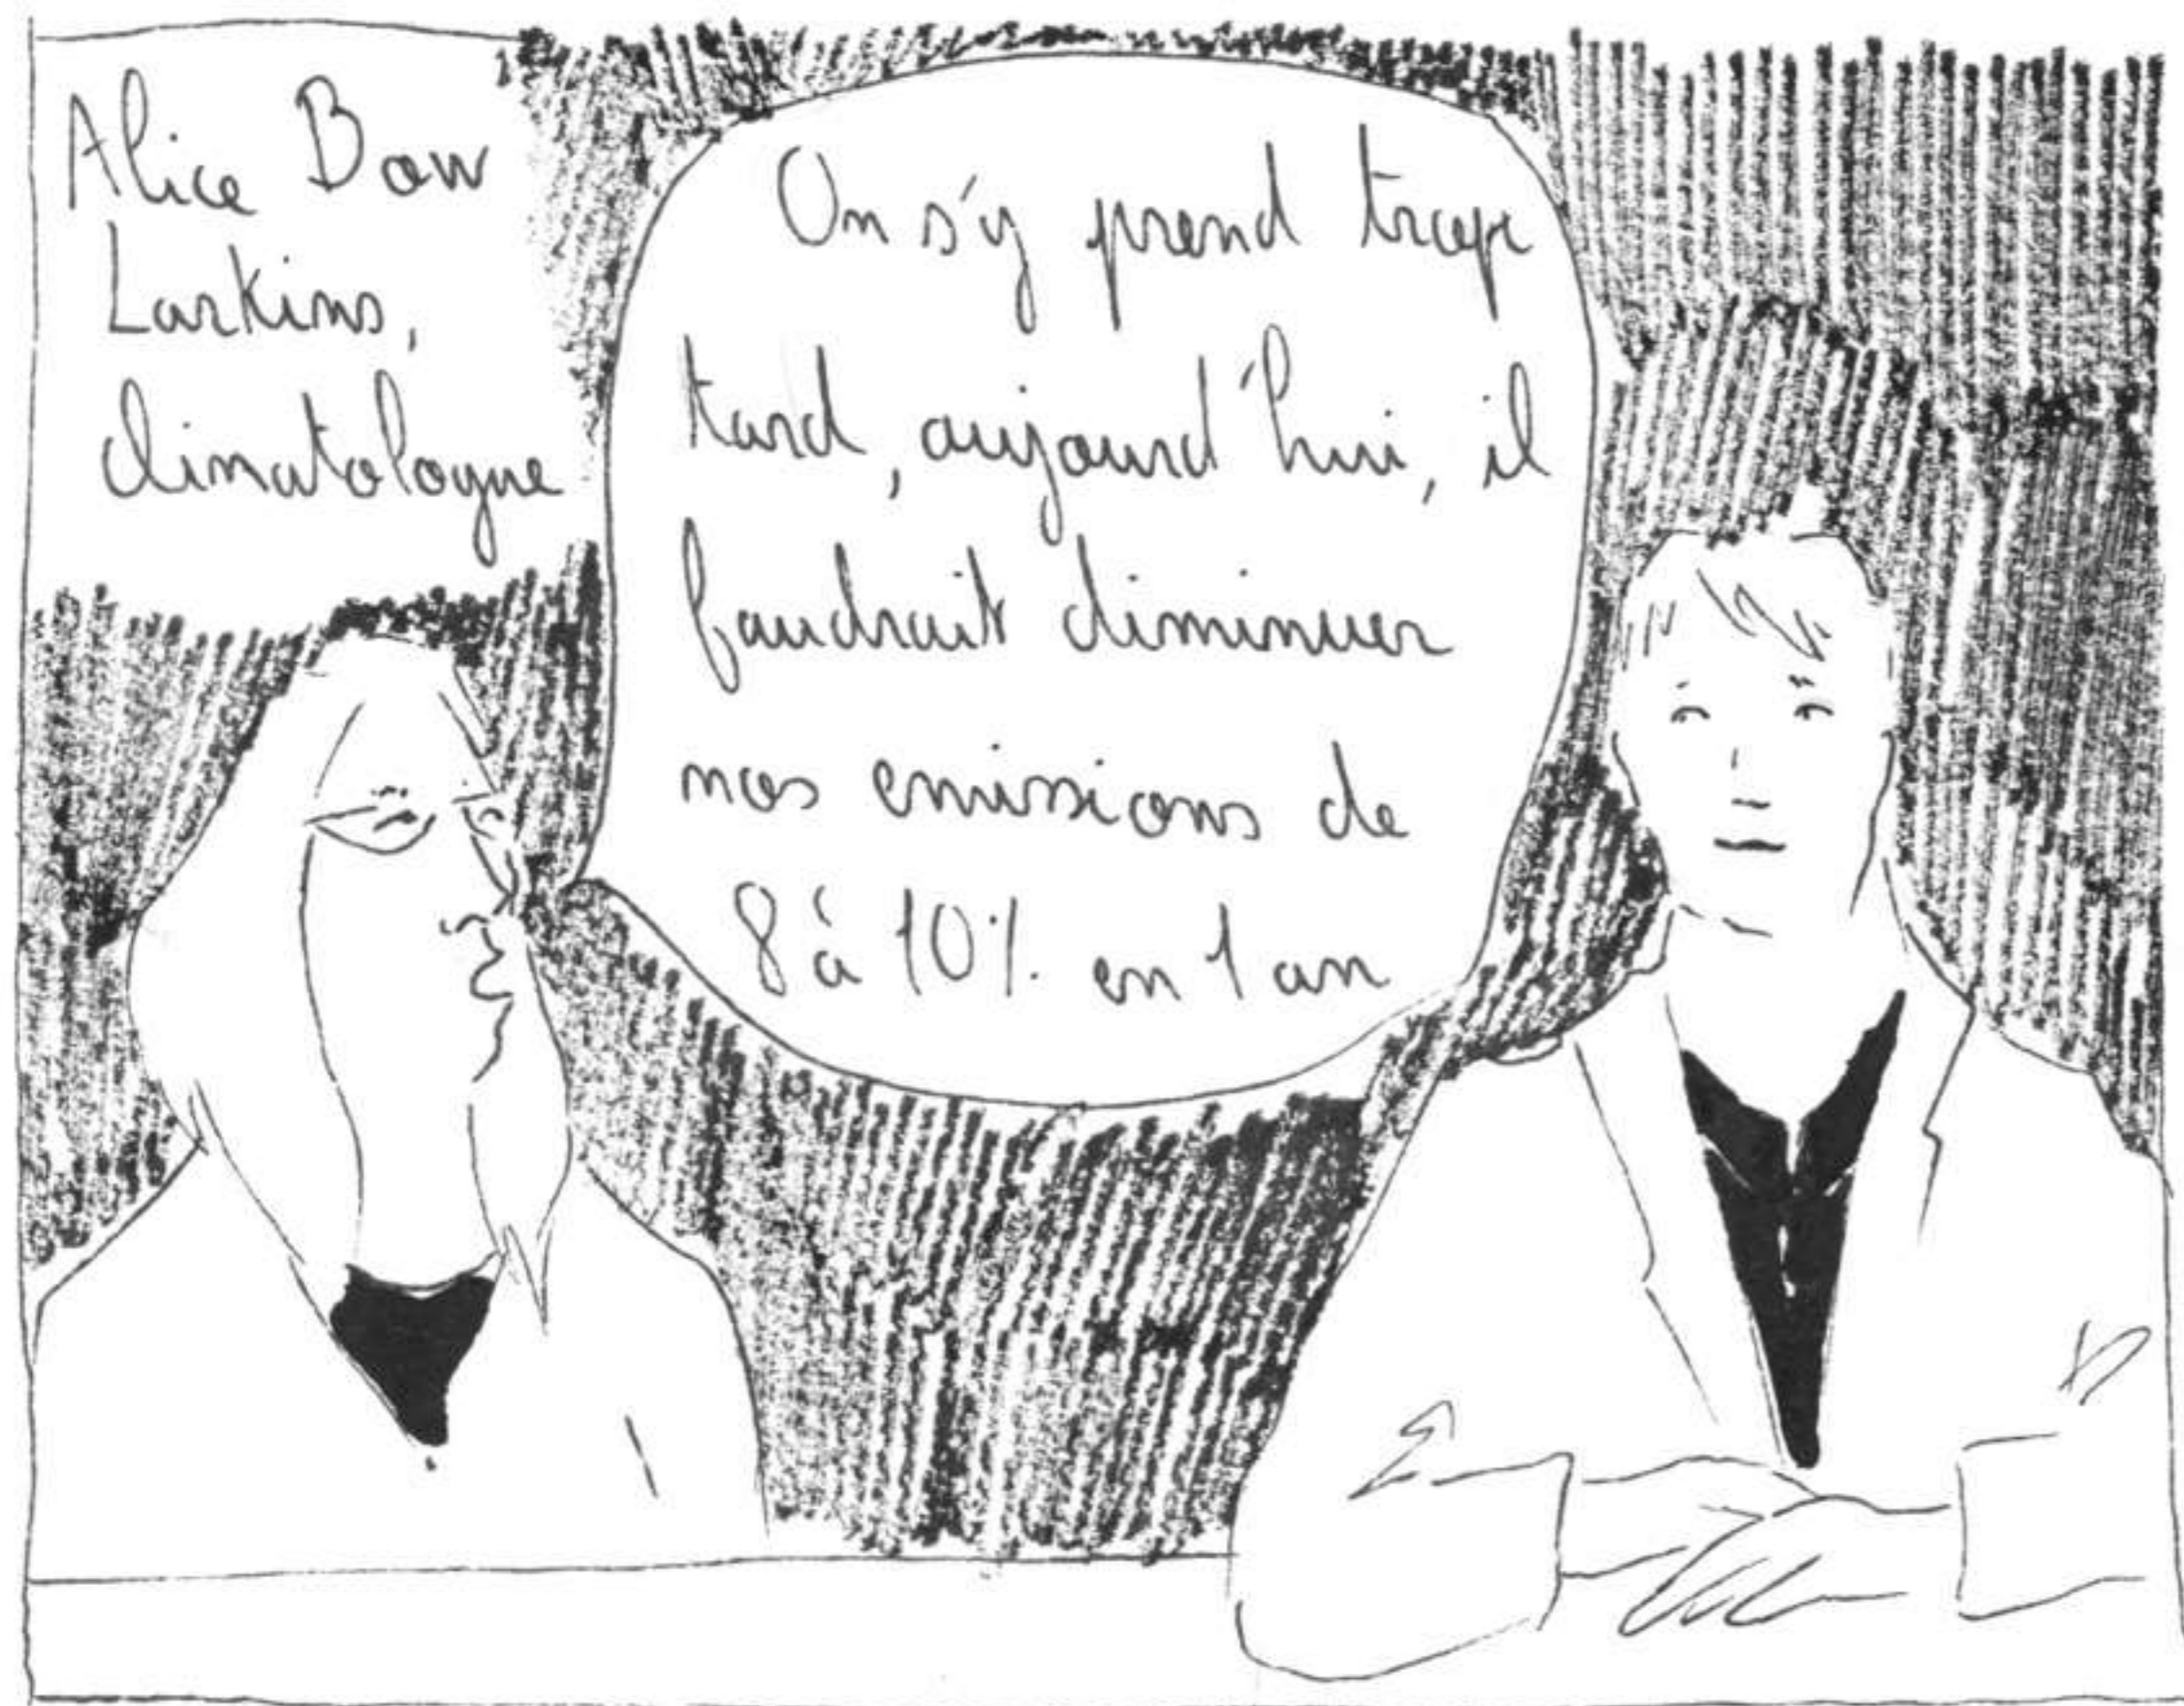 Alice Bow
Larkins,
climatologue
On s'y prend trop
tard, aujourd'hui, il
faudrait diminuer
nos emissions de
8 à 10% en 1 an